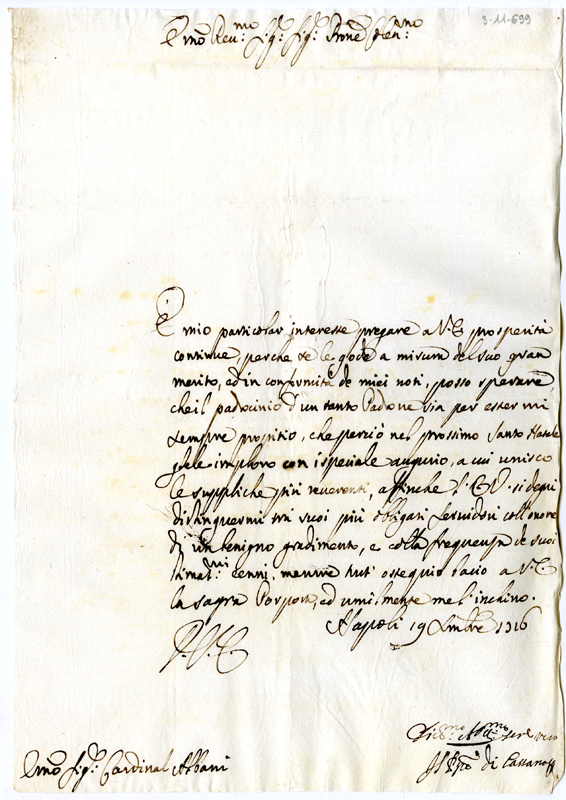 3-11-699
Emo Reu:mo Sig: Sig: Prone Colen:
È mio particolar interesse pregare a V.E. prosperità
continue, perche se le gode a misura del suo gran
merito, ed in conformità de miei voti, posso sperare
che il padocinio d'un tanto Padrone sia per essermi
sempre propitio, che perciò nel prossimo Santo Natale
gliele imploro con ispeciale augurio, a cui unisco
le suppliche più reverenti, affinche l'E.V. si degni
distinguermi tra suoi più obligati servidori coll'onore
di un benigno gradimento, e colla frequenza de suoi
stimat:mi cenni, mentre tutt'ossequio bacio a V.E.
la sagra Porpora, ed umilmente me l'inchino.
Napoli 19 Xmbre 1716
V.E.
Emo Sig: Cardinal Albani
di Cassano